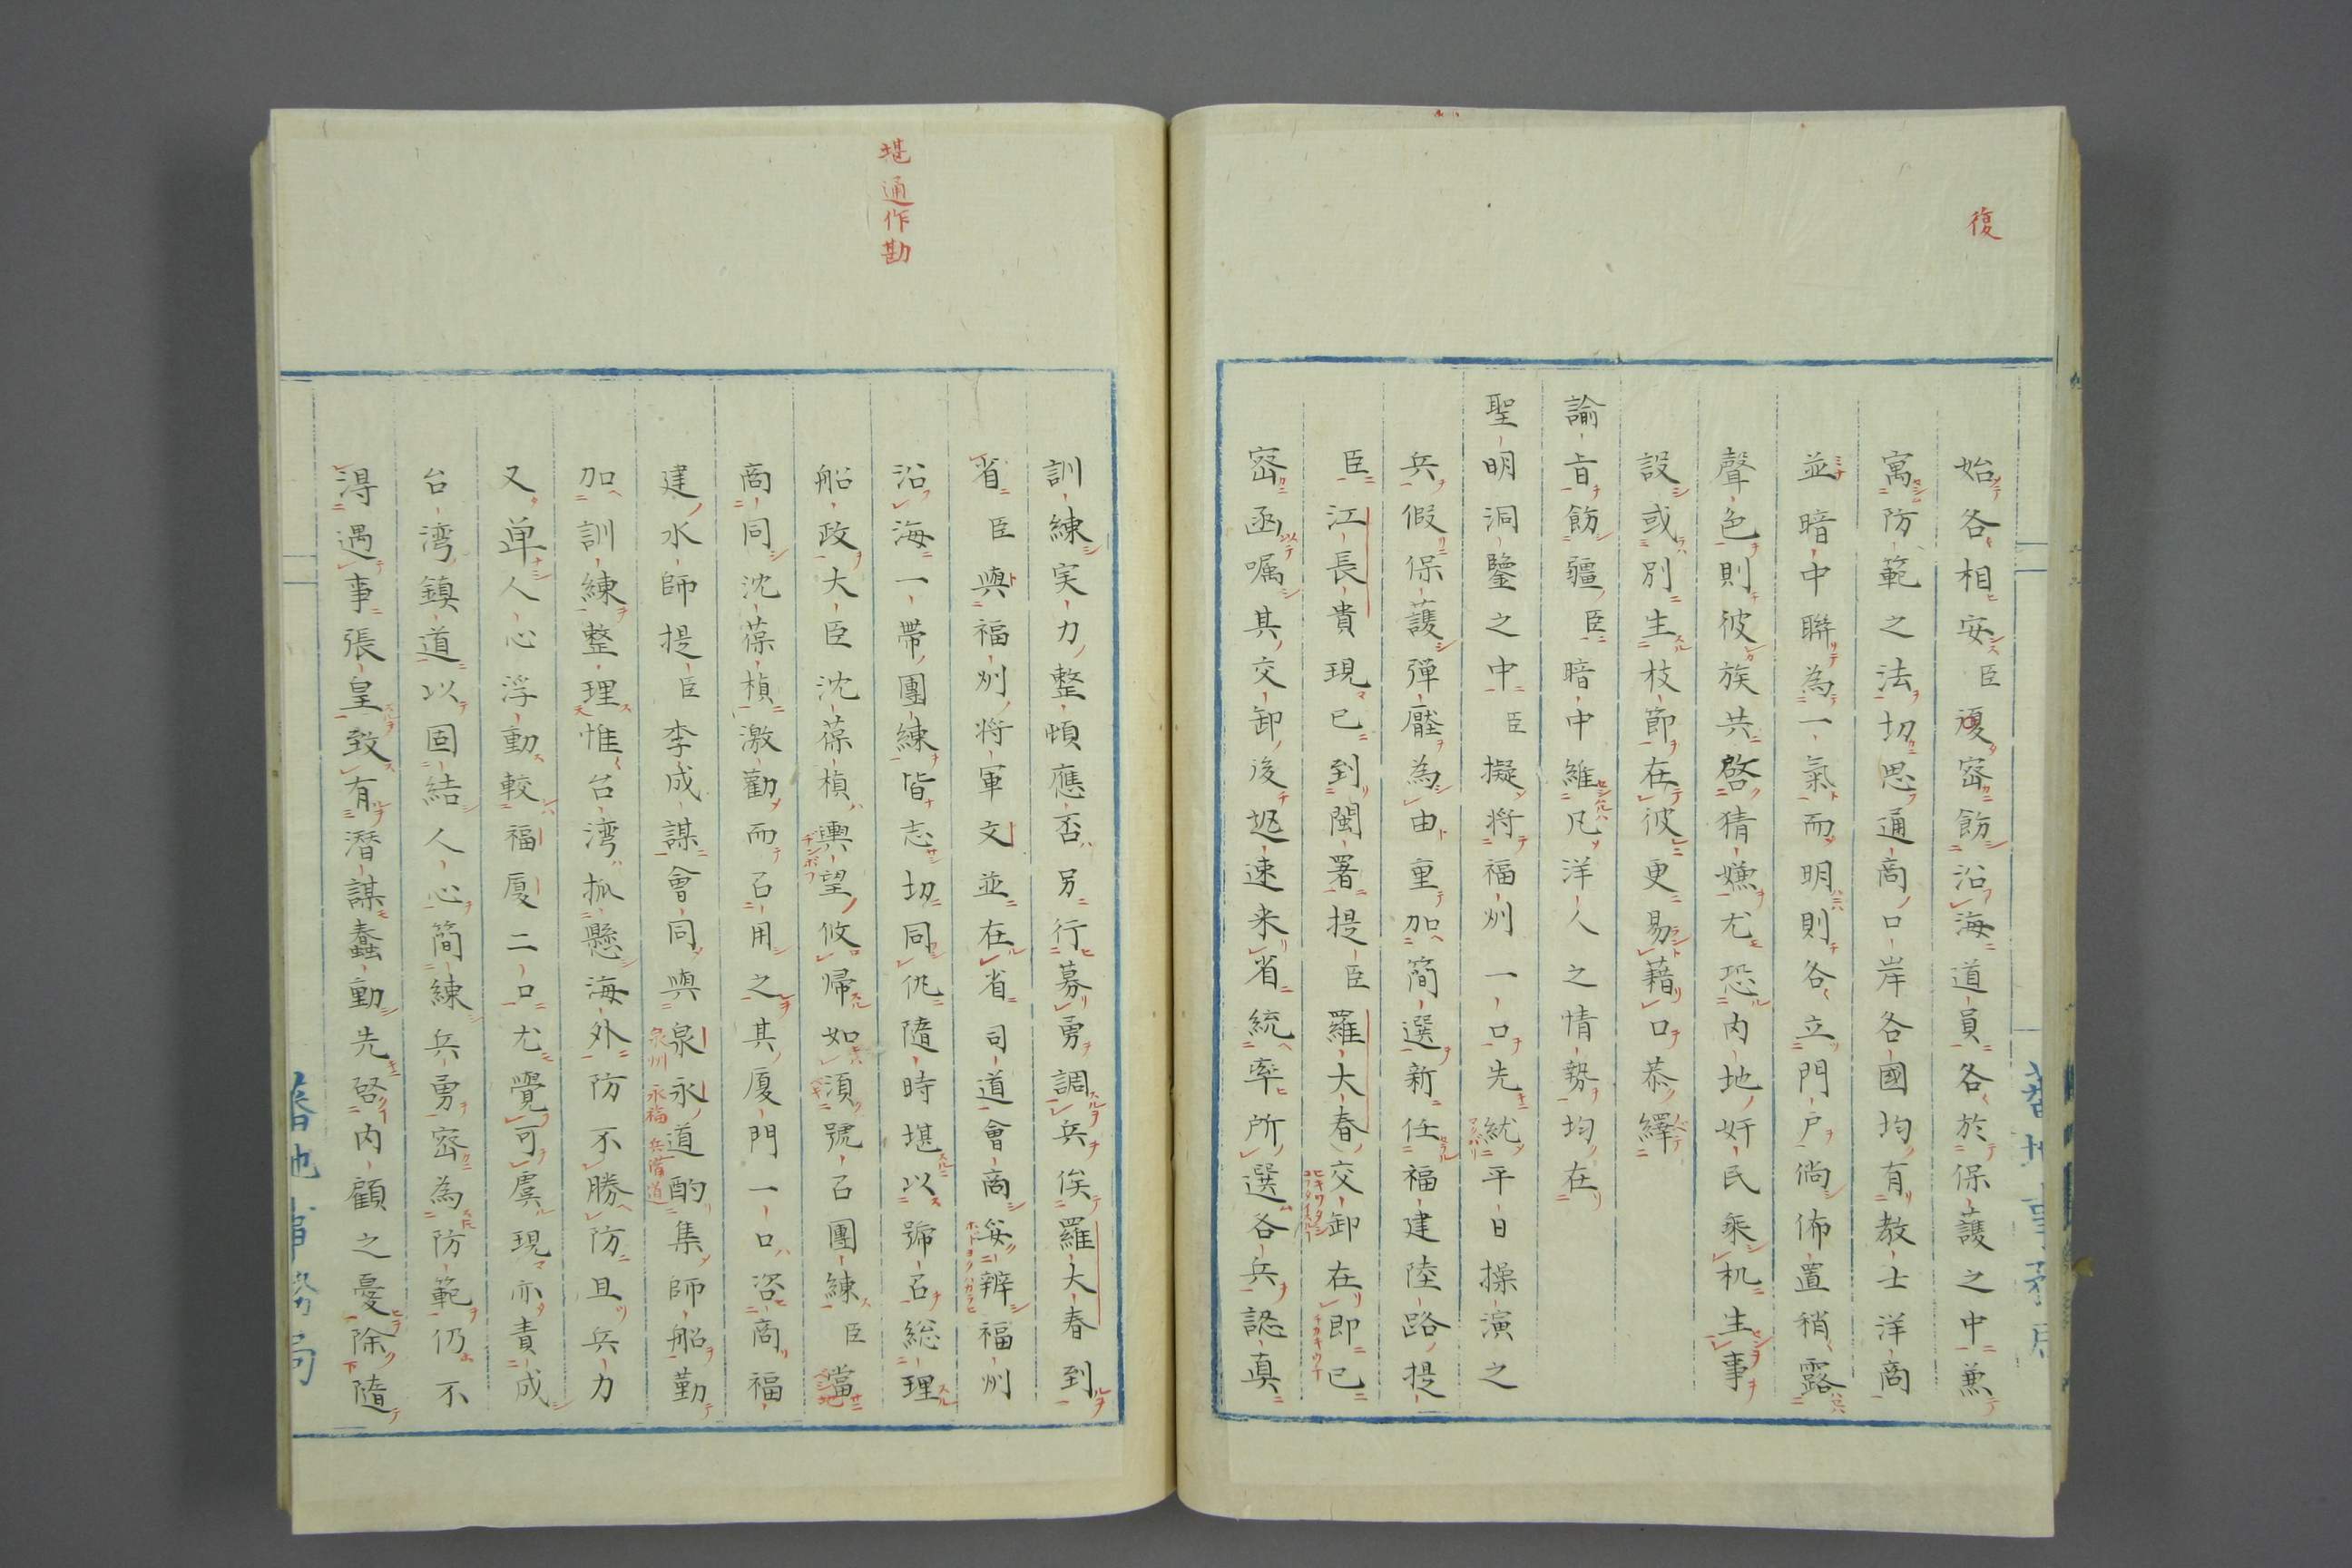 復
始各相安臣復密飭沿海道員各於保護之中兼
寓防範之法切思通商口岸各國均有教士洋商
並暗中聯為一氣而明則各立門戸倘佈置稍露
聲色則彼族共啓猜嫌尤恐内地奸民乘机生事
設或別生枝節在彼更易藉口恭繹
諭旨飭疆臣暗中維凡洋人之情勢均在
聖明洞鑒之中臣擬將福州一口先就平日操演之
兵假保護彈壓為由重加簡選新任福建陸路提
臣江長貴現已到閩署提臣羅大春交卸在即已
密函嘱其交卸後趂速来省統率所選各兵認真
堪通作勘
訓練実力整頓應否另行募勇調兵俟羅大春到
省臣與福州将軍文並在省司道會商妥辦福州
沿海一帶團練皆志切同仇隨時堪以號召総理
船政大臣沈葆楨輿望攸歸如須號召團練臣當
商同沈葆楨激勸而召用之其厦門一口咨商福
建水師提臣李成謀會同與泉永道酌集師船勤
泉州 永福 兵備道
加訓練整理惟台湾孤懸海外防不勝防且兵力
又単人心浮動較福厦二口尤覺可虞現亦責成
台湾鎮道以固結人心簡練兵勇密為防範仍不
淂遇事張皇致有潛謀蠢動先啓内顧之憂除隨
蕃地事務局